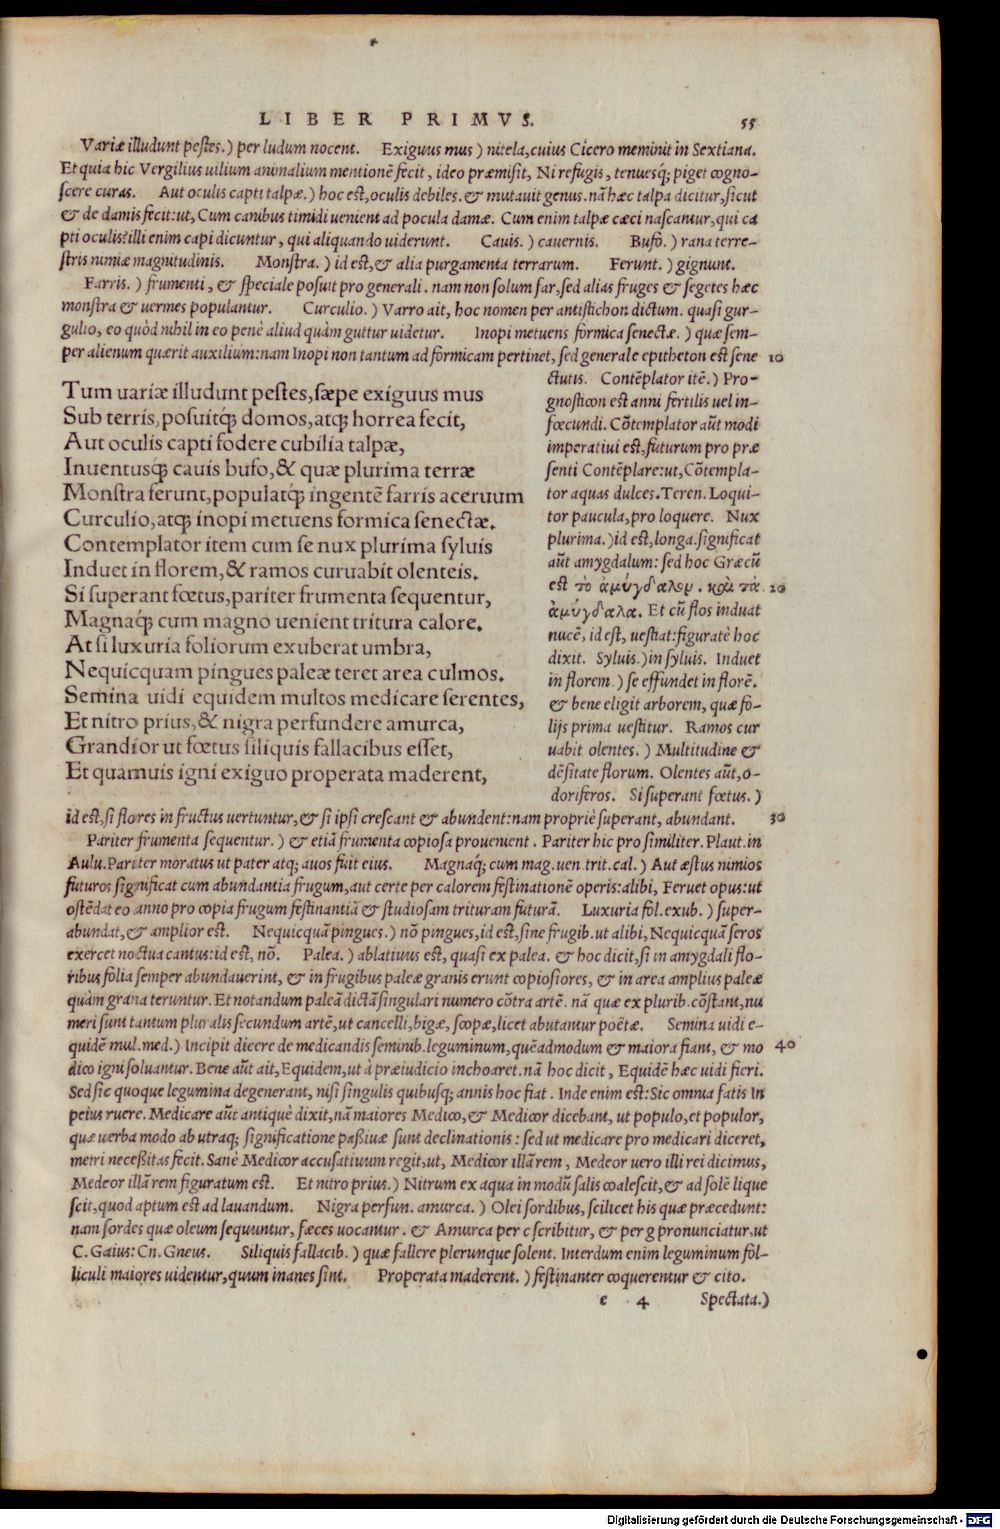 LIBER PRIMVS. 55
Variæ illudunt pestes.) per ludum nocent. Exiguus mus) nitela, cuius Cicero meminit in Sextiana.
Et quia hic Vergilius uilium animalium mentionē fecit, ideo præmisit, Ni refugis, tenuesq́; piget cogno-
scere curas. Aut oculis capti talpæ.) hoc est, oculis debiles. & mutauit genus. nā hæc talpa dicitur, sicut
& de damis fecit: ut, Cum canibus timidi uenient ad pocula damæ. Cum enim talpæ cæci nascantur, qui ca
pti oculis? illi enim capi dicuntur, qui aliquando uiderunt. Cauis.) cauernis. Bufo.) rana terre-
stris nimiæ magnitudinis. Monstra.) id est, & alia purgamenta terrarum. Ferunt.) gignunt.
Farris.) frumenti, & speciale posuit pro generali. nam non solum far, sed alias fruges & segetes hæc
monstra & uermes populantur. Curculio.) Varro ait, hoc nomen per antistichon dictum. quasi gur-
gulio, eo quòd nihil in eo penè aliud quàm guttur uidetur. Inopi metuens formica senectæ.) quæ sem-
per alienum quærit auxilium: nam Inopi non tantum ad formicam pertinet, sed generale epitheton est sene 10
Tum uariæ illudunt pestes, sæpe exiguus mus
Sub terris, posuitq́; domos, atq; horrea fecit,
Aut oculis capti fodere cubilia talpæ,
Inuentusq́; cauis bufo, & quæ plurima terræ
Monstra ferunt, populatq́; ingentē farris aceruum
Curculio, atq; inopi metuens formica senectæ.
Contemplator item cum se nux plurima syluis
Induet in florem, & ramos curuabit olenteis.
Si superant fœtus, pariter frumenta sequentur,
Magnaq́; cum magno uenient tritura calore.
At si luxuria foliorum exuberat umbra,
Nequicquam pingues paleæ teret area culmos.
Semina uidi equidem multos medicare serentes,
Et nitro prius, & nigra perfundere amurca,
Grandior ut fœtus siliquis fallacibus esset,
Et quamuis igni exiguo properata maderent,
ctutis. Contēplator itē.) Pro-
gnosticon est anni fertilis uel in-
fœcundi. Cōtemplator aūt modi
imperatiui est, futurum pro præ
senti Contēplare: ut, Cōtempla-
tor aquas dulces. Teren. Loqui-
tor paucula, pro loquere. Nux
plurima.) id est, longa. significat
aūt amygdalum: sed hoc Græcū
est τὸ ἀμύγδαλον. καὶ τὰ 20
ἀμύγδαλα. Et cū flos induat
nucē, id est, uestiat: figuratè hoc
dixit. Syluis.) in syluis. Induet
in florem.) se effundet in florē.
& bene eligit arborem, quæ fo-
lijs prima uestitur. Ramos cur
uabit olentes.) Multitudine &
dēsitate florum. Olentes aūt, o-
doriferos. Si superant fœtus.)
id est, si flores in fructus uertuntur, & si ipsi crescant & abundent: nam propriè superant, abundant. 30
Pariter frumenta sequentur.) & etiā frumenta copiosa prouenient. Pariter hic pro similiter. Plaut. in
Aulu. Pariter moratus ut pater atq; auos fuit eius. Magnaq́; cum mag. uen. trit. cal.) Aut æstus nimios
futuros significat cum abundantia frugum, aut certe per calorem festinationē operis: alibi, Feruet opus: ut
ostēdat eo anno pro copia frugum festinantiā & studiosam trituram futurā. Luxuria fol. exub.) super-
abundat, & amplior est. Nequicquā pingues.) nō pingues, id est, sine frugib. ut alibi, Nequicquā seros
exercet noctua cantus: id est, nō. Palea.) ablatiuus est, quasi ex palea. & hoc dicit, si in amygdali flo-
ribus folia semper abundauerint, & in frugibus paleæ granis erunt copiosiores, & in area amplius paleæ
quàm grana teruntur. Et notandum paleā dictā singulari numero cōtra artē. nā quæ ex plurib. cōstant, nu
meri sunt tantum pluralis secundum artē, ut cancelli, bigæ, scopæ, licet abutantur poëtæ. Semina uidi e-
quidē mul. med.) Incipit dicere de medicandis seminib. leguminum, quēadmodum & maiora fiant, & mo 40
dico igni soluantur. Bene aūt ait, Equidem, ut à præiudicio inchoaret. nā hoc dicit, Equidē hæc uidi fieri.
Sed sic quoque legumina degenerant, nisi singulis quibusq; annis hoc fiat. Inde enim est: Sic omnia fatis In
peius ruere. Medicare aūt antiquè dixit, nā maiores Medico, & Medicor dicebant, ut populo, et populor,
quæ uerba modo ab utraq; significatione passiuæ sunt declinationis: sed ut medicare pro medicari diceret,
metri necessitas fecit. Sanè Medicor accusatiuum regit, ut, Medicor illā rem, Medeor uero illi rei dicimus,
Medeor illā rem figuratum est. Et nitro prius.) Nitrum ex aqua in modū salis coalescit, & ad solē lique
scit, quod aptum est ad lauandum. Nigra perfun. amurca.) Olei sordibus, scilicet his quæ præcedunt:
nam sordes quæ oleum sequuntur, fæces uocantur. & Amurca per c scribitur, & per g pronunciatur, ut
C. Gaius: Cn. Gneus. Siliquis fallacib.) quæ fallere plerunque solent. Interdum enim leguminum fol-
liculi maiores uidentur, quum inanes sint. Properata maderent.) festinanter coquerentur & cito.
e 4 Spectata.)
Digitalisierung gefördert durch die Deutsche Forschungsgemeinschaft - DFG